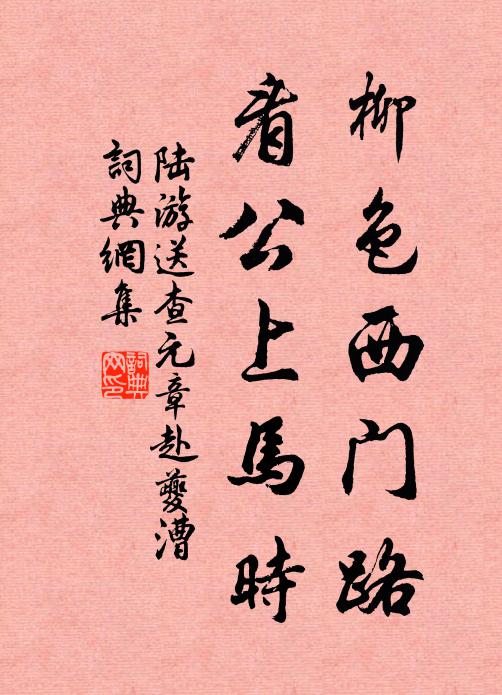 柳色西门路
看公上馬時
陆游送查元章赴夔漕
詞典網集
詞典
网印